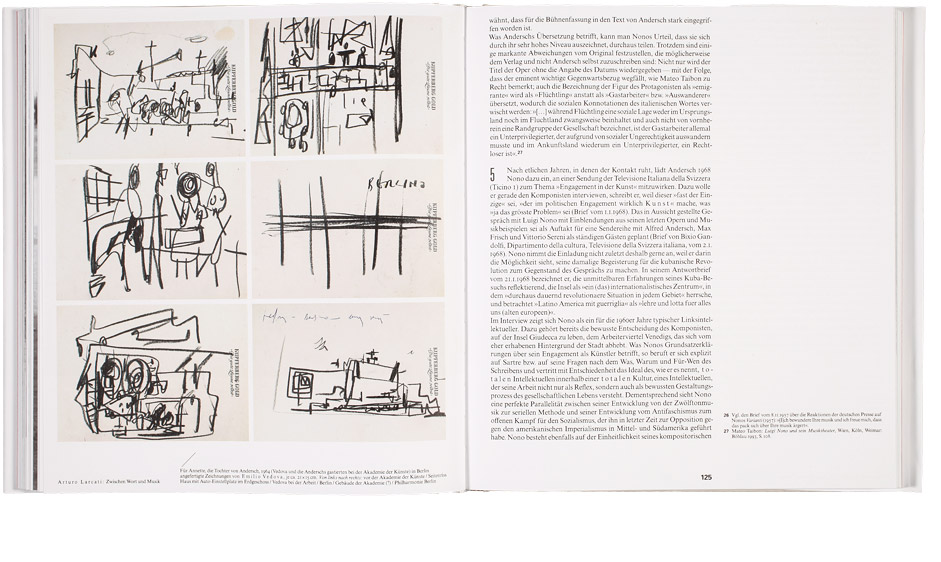 KUPFERBERG GOLD
KUPFERBERG GOLD
KUPFERBERG GOLD
BERLINO
KUPFERBERG GOLD
KUPFERBERG GOLD
KUPFERBERG GOLD
Für Annette, die Tochter von Andersch, 1964 (Vedova und die Anderschs gastierten bei der Akademie der Künste) in Berlin
angefertigte Zeichnungen von Emilio Vedova, je ca. 21×15 cm. Von links nach rechts: vor der Akademie der Künste / Seltsames
Haus mit Auto-Einstellplatz im Erdgeschoss / Vedova bei der Arbeit / Berlin / Gebäude der Akademie (?) / Philharmonie Berlin
Arturo Larcati: Zwischen Wort und Musik
wähnt, dass für die Bühnenfassung in den Text von Andersch stark eingegrif-
fen worden ist.
Was Anderschs Übersetzung betrifft, kann man Nonos Urteil, dass sie sich
durch ihr sehr hohes Niveau auszeichnet, durchaus teilen. Trotzdem sind eini-
ge markante Abweichungen vom Original festzustellen, die möglicherweise
dem Verlag und nicht Andersch selbst zuzuschreiben sind: Nicht nur wird der
Titel der Oper ohne die Angabe des Datums wiedergegeben — mit der Folge,
dass der eminent wichtige Gegenwartsbezug wegfällt, wie Mateo Taibon zu
Recht bemerkt; auch die Bezeichnung der Figur des Protagonisten als »emig-
rante« wird als »Flüchtling« anstatt als »Gastarbeiter« bzw. »Auswanderer«
übersetzt, wodurch die sozialen Konnotationen des italienischen Wortes ver-
wischt werden: »[…] während Flüchtling eine soziale Lage weder im Ursprungs-
land noch im Fluchtland zwangsweise beinhaltet und auch nicht von vornhe-
rein eine Randgruppe der Gesellschaft bezeichnet, ist der Gastarbeiter allemal
ein Unterprivilegierter, der aufgrund von sozialer Ungerechtigkeit auswandern
musste und im Ankunftsland wiederum ein Unterprivilegierter, ein Recht-
loser ist«.27
5 Nach etlichen Jahren, in denen der Kontakt ruht, lädt Andersch 1968
Nono dazu ein, an einer Sendung der Televisione Italiana della Svizzera
(Ticino 1) zum Thema »Engagement in der Kunst« mitzuwirken. Dazu wolle
er gerade den Komponisten interviewen, schreibt er, weil dieser »fast der Ein-
zige« sei, »der im politischen Engagement wirklich Kunst« mache, was
»ja das grösste Problem« sei (Brief vom 1.1.1968). Das in Aussicht gestellte Ge-
spräch mit Luigi Nono mit Einblendungen aus seinen letzten Opern und Mu-
sikbeispielen sei als Auftakt für eine Sendereihe mit Alfred Andersch, Max
Frisch und Vittorio Sereni als ständigen Gästen geplant (Brief von Bixio Can-
dolfi, Dipartimento della cultura, Televisione della Svizzera italiana, vom 2.1.
1968). Nono nimmt die Einladung nicht zuletzt deshalb gerne an, weil er darin
die Möglichkeit sieht, seine damalige Begeisterung für die kubanische Revo-
lution zum Gegenstand des Gesprächs zu machen. In seinem Antwortbrief
vom 21.1.1968 bezeichnet er, die unmittelbaren Erfahrungen seines Kuba-Be-
suchs reflektierend, die Insel als »ein (das) internationalistisches Zentrum«, in
dem »durchaus dauernd revolutionaere Situation in jedem Gebiet« herrsche,
und betrachtet »Latino America mit guerriglia« als »lehre und lotta fuer alles
uns (alten europeen)«.
Im Interview zeigt sich Nono als ein für die 1960er Jahre typischer Linksintel-
lektueller. Dazu gehört bereits die bewusste Entscheidung des Komponisten,
auf der Insel Giudecca zu leben, dem Arbeiterviertel Venedigs, das sich vom
eher erhabenen Hintergrund der Stadt abhebt. Was Nonos Grundsatzerklä-
rungen über sein Engagement als Künstler betrifft, so beruft er sich explizit
auf Sartre bzw. auf seine Fragen nach dem Was, Warum und Für-Wen des
Schreibens und vertritt mit Entschiedenheit das Ideal des, wie er es nennt, to-
talen Intellektuellen innerhalb einer totalen Kultur, eines Intellektuellen,
der seine Arbeit nicht nur als Reflex, sondern auch als bewussten Gestaltungs-
prozess des gesellschaftlichen Lebens versteht. Dementsprechend sieht Nono
eine perfekte Parallelität zwischen seiner Entwicklung von der Zwölftonmu-
sik zur seriellen Methode und seiner Entwicklung vom Antifaschismus zum
offenen Kampf für den Sozialismus, der ihn in letzter Zeit zur Opposition ge-
gen den amerikanischen Imperialismus in Mittel- und Südamerika geführt
habe. Nono besteht ebenfalls auf der Einheitlichkeit seines kompositorischen
26 Vgl. den Brief vom 8.11.1957 über die Reaktionen der deutschen Presse auf
Nonos Varianti (1957): »(Ich bewundere Ihre musik und ich freue mich, dass
das pack sich über Ihre musik ärgert«.
27 Mateo Taibon: Luigi Nono und sein Musiktheater, Wien, Köln, Weimar:
Böhlau 1993, S. 108.
125